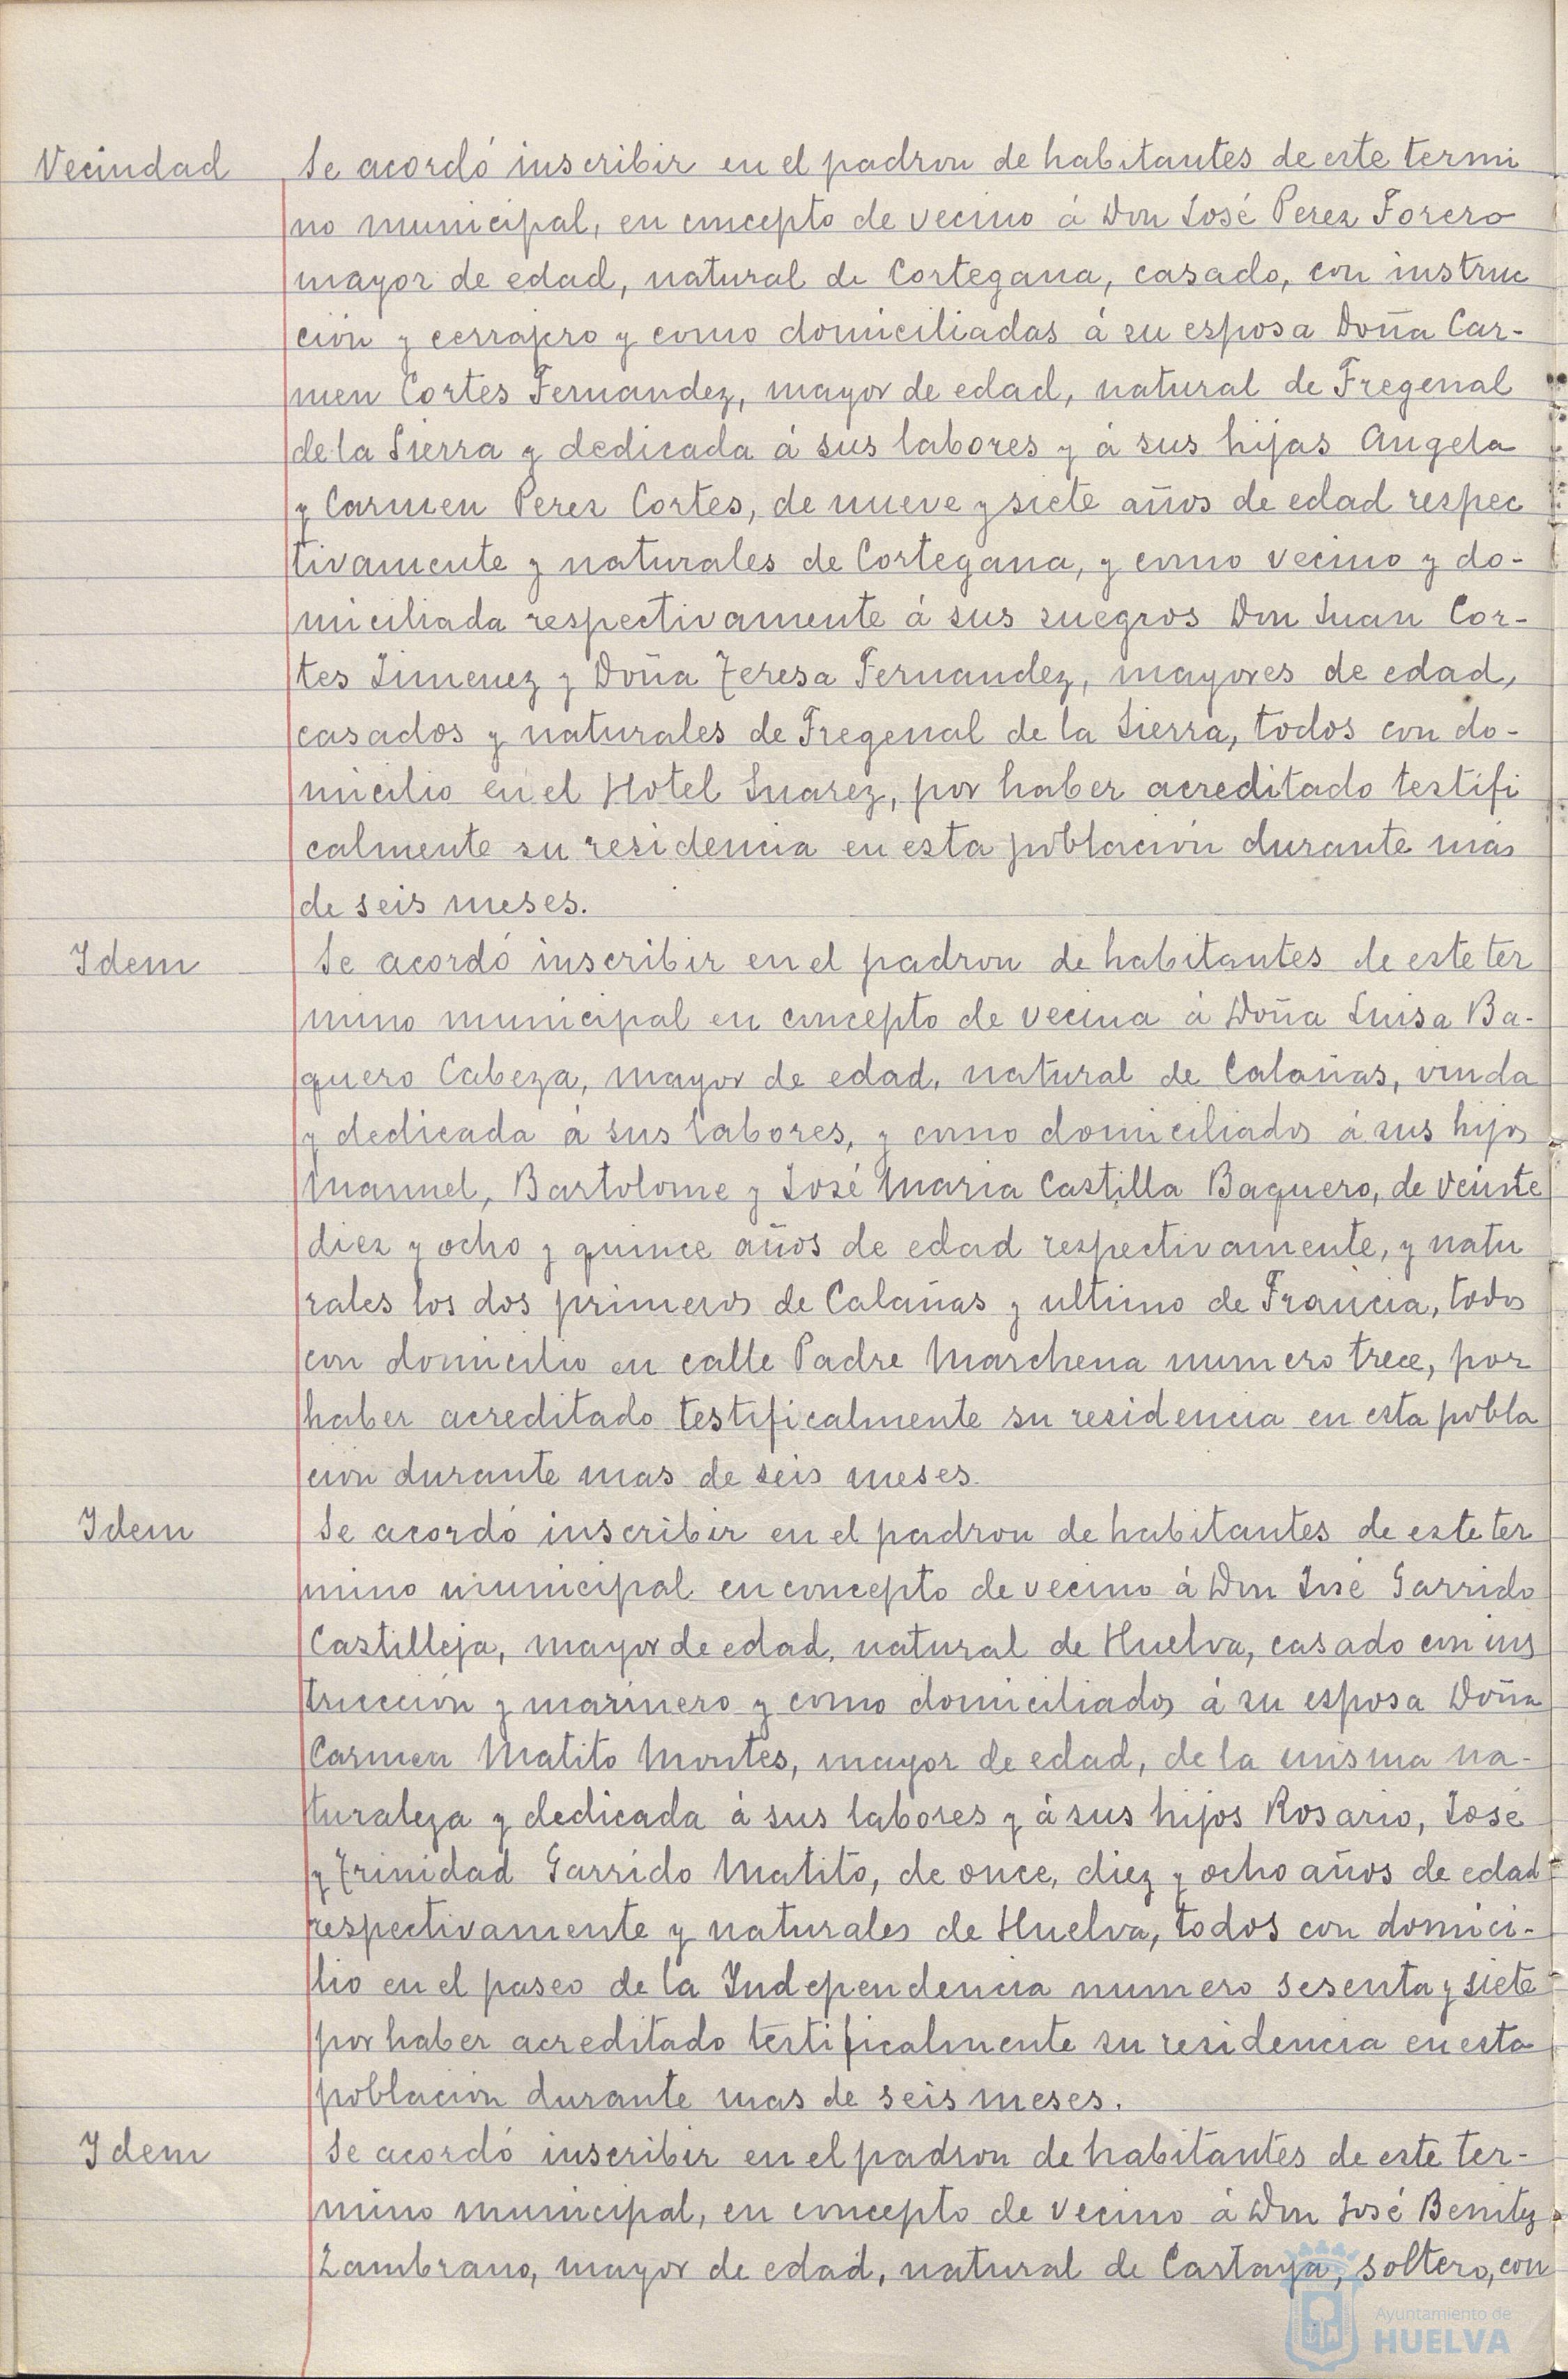 Vecindad
Se acordó inscribir en el padron de habitantes de este termi
no municipal, en concepto de vecino á Don José Perez Forero
mayor de edad, natural de Cortegana, casado, con instruc
ción y cerrajero y como domiciliadas á su esposa Doña Car-
men Cortes Fernandez, mayor de edad, natural de Fregenal
de la Sierra y dedicada á sus labores y á sus hijas Angela
y Carmen Perez Cortes, de nueve y siete años de edad respec
tivamente y naturales de Cortegana, y como vecino y do-
miciliada respectivamente á sus suegros Don Juan Cor-
tes Jimenez y Doña Teresa Fernandez, mayores de edad,
casados y naturales de Fregenal de la Sierra, todos con do-
micilio en el Hotel Suarez, por haber acreditado testifi
calmente su residencia en esta población durante más
de seis meses.
Idem
Se acordó inscribir en el padron de habitantes de este ter
mino municipal en concepto de vecina á Doña Luisa Ba-
quero Cabeza, mayor de edad, natural de Calañas, viuda
y dedicada á sus labores, y como domiciliados á sus hijos
Manuel, Bartolome y José Maria Castilla Baquero, de veinte
diez y ocho y quince años de edad respectivamente, y natu
rales los dos primeros de Calañas y ultimo de Francia, todos
con domicilio en calle Padre Marchena numero trece, por
haber acreditado testificalmente su residencia en esta pobla
ción durante mas de seis meses.
Idem
Se acordó inscribir en el padron de habitantes de este ter
mino municipal en concepto de vecino á Don José Garrido
Castilleja, mayor de edad, natural de Huelva, casado con ins
trucción y marinero y como domiciliados á su esposa Doña
Carmen Matito Montes, mayor de edad, de la misma na-
turaleza y dedicada á sus labores y á sus hijos Rosario, José
y Trinidad Garrido Matito, de once, diez y ocho años de edad
respectivamente y naturales de Huelva, todos con domici-
lio en el paseo de la Independencia numero sesenta y siete
por haber acreditado testificalmente su residencia en esta
población durante mas de seis meses.
Idem
Se acordó inscribir en el padron de habitantes de este ter-
mino municipal, en concepto de vecino á Don José Benitez
Zambrano, mayor de edad, natural de Cartaya, soltero, con
Ayuntamiento de
HUELVA